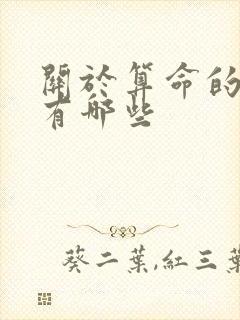 關於算命的
有哪些
葵二葉,紅三葉